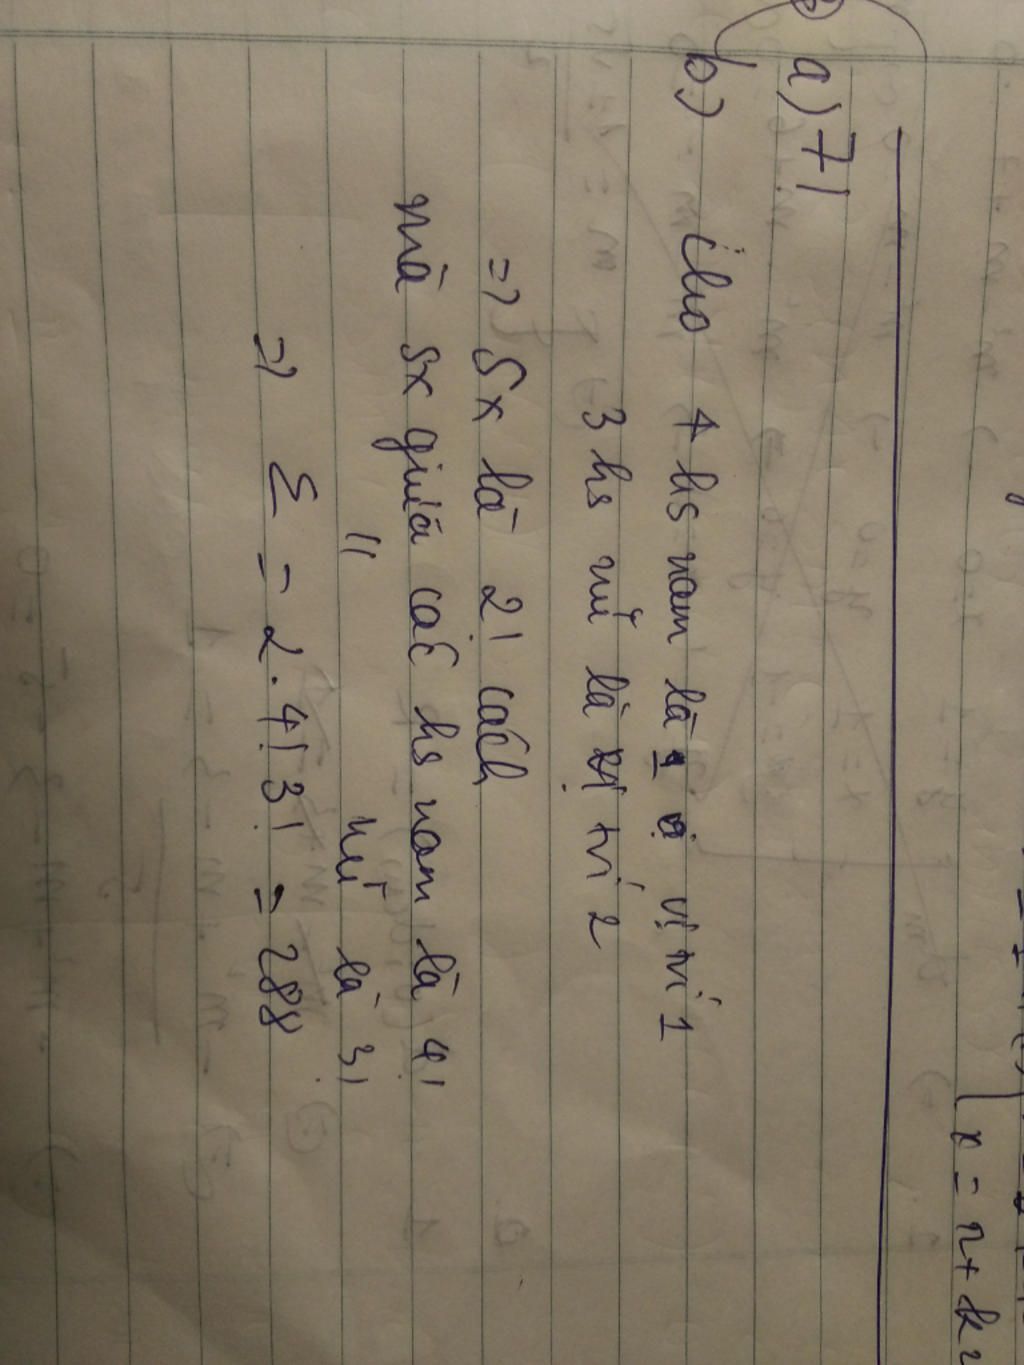 a) 7!
b) Cho 4 hs nam là 1 vị trí 1
3 hs nữ là vị trí 2
=> Sx là 2! cách
mà sx giữa các hs nam là 4!
" nữ là 3!
=> Σ = 2.4!3! = 288
x = n + k